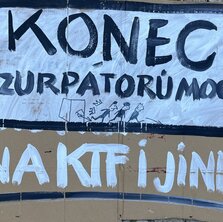 KONEC
ZURPÁTORŮ MOC
NA KTF I JIN